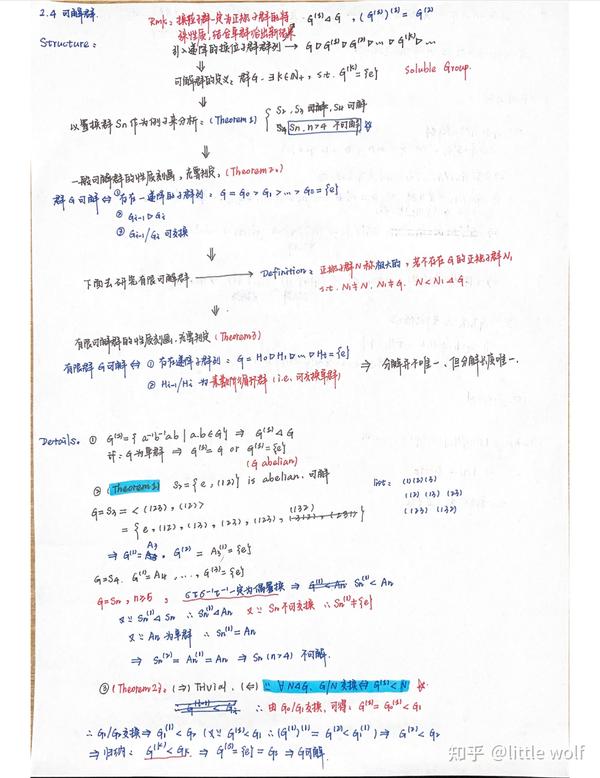 2.4 可解群.
Rmk: 换位子群一定为正规子群的特殊性质, 结合单群给出新结果 G⁽¹⁾ ◁ G , (G⁽¹⁾)⁽¹⁾ = G⁽²⁾
Structure:
引入递降的换位子群群列 → G ▷ G⁽¹⁾ ▷ G⁽²⁾ ▷ … ▷ G⁽ᵏ⁾ ▷ …
⇓
可解群的定义: 群G. ∃ k∈N₊, s.t. G⁽ᵏ⁾={e} Soluble Group.
⇓
以置换群Sn作为例子来分析: (Theorem 1) { S₂, S₃ 可解, S₄ 可解
Sn, n>4 不可解
⇓
一般可解群的性质刻画, 充要判定, (Theorem 2.)
群G可解 ⇔ ① 存在一递降的子群列: G = G₀ > G₁ > … > Gs = {e}
② Gi-1 ▷ Gi
③ Gi-1/Gi 可交换
⇓
下面去研究有限可解群 → Definition: 正规子群N称极大的, 若不存在G的正规子群N₁
s.t. N₁≠N, N₁≠G. N<N₁◁G.
⇓
有限可解群的性质刻画, 充要判定 (Theorem 3)
有限群G可解 ⇔ ① 存在递降子群列: G = H₀ ▷ H₁ ▷ … ▷ Ht = {e} ⇒ 分解并不唯一、但分解长度唯一.
② Hi-1/Hi 为素数阶循环群 (i.e. 可交换单群)
Details. ① G⁽¹⁾={ a⁻¹b⁻¹ab | a.b∈G} ⇒ G⁽¹⁾◁G
注: G为单群 ⇒ G⁽¹⁾=G or G⁽¹⁾={e}
(G abelian)
② (Theorem 1) S₂={e, (12)} is abelian. 可解 list: (1)(2)(3)
G=S₃ = <(123), (12)> (12) (13) (23)
= {e, (12), (13), (23), (123), (132)} (123) (132)
⇒ G⁽¹⁾=A₃, G⁽²⁾ = A₃⁽¹⁾={e}
G=S₄. G⁽¹⁾=A₄, …, G⁽³⁾={e}
G=Sn, n≥5, στσ⁻¹τ⁻¹一定为偶置换 ⇒ Sn⁽¹⁾<An
又∵ Sn⁽¹⁾◁Sn ∴ Sn⁽¹⁾◁An 又∵ Sn不可交换 ∴ Sn⁽¹⁾≠{e}
又∵ An为单群 ∴ Sn⁽¹⁾=An
⇒ Sn⁽²⁾ = An⁽¹⁾ = An ⇒ Sn (n>4) 不可解.
③ (Theorem 2): (⇒) Trivial. (⇐) ∵ ∀N◁G, G/N交换 ⇔ G⁽¹⁾<N
∴ 由 G₀/G₁交换, 可得: G⁽¹⁾=G₀⁽¹⁾<G₁
∴ G₁/G₂交换 ⇒ G₁⁽¹⁾<G₂ (又∵ G⁽¹⁾<G₁ ∴ (G⁽¹⁾)⁽¹⁾ = G⁽²⁾<G₁⁽¹⁾) ⇒ G⁽²⁾<G₂
⇒ 归纳: G⁽ᵏ⁾<Gk ⇒ G⁽ˢ⁾={e}=Gs ⇒ G可解.
知乎 @little wolf